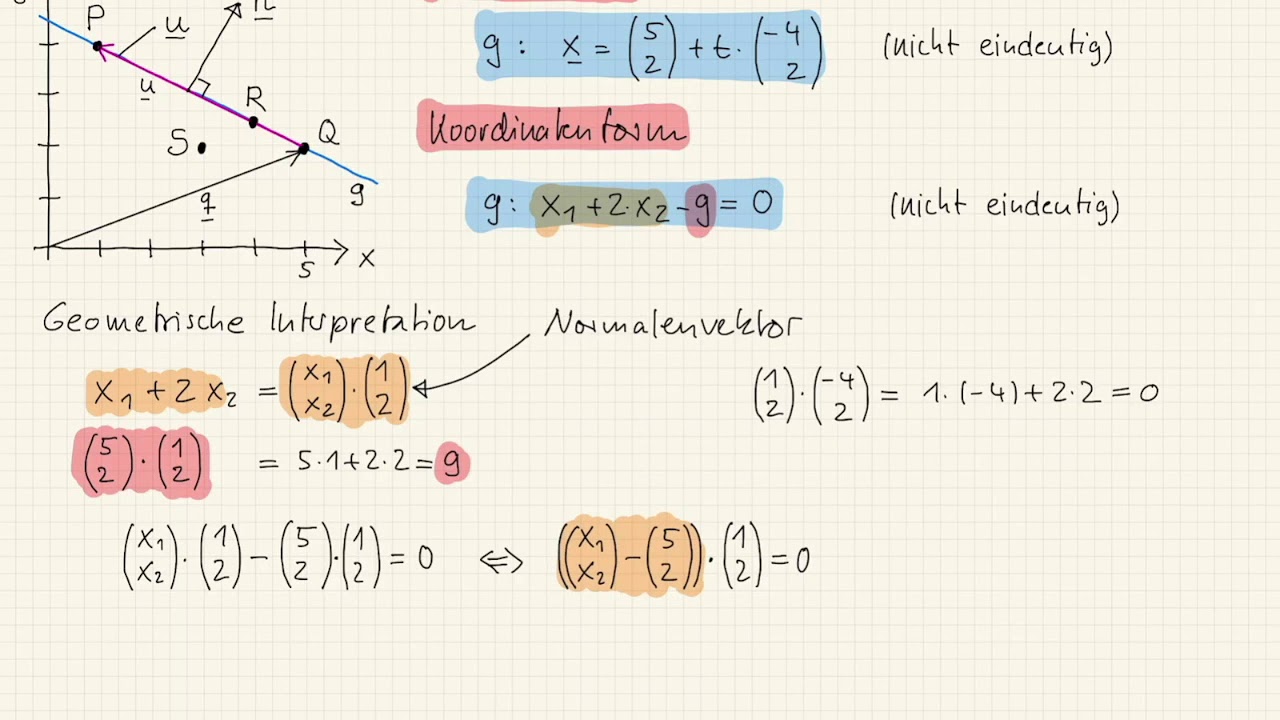 P u n
g : x = (5 2) + t · (-4 2) (nicht eindeutig)
u R
Koordinatenform
S Q
q g
g: x₁ + 2·x₂ - 9 = 0 (nicht eindeutig)
5 x
Geometrische Interpretation Normalenvektor
x₁ + 2 x₂ = (x₁ x₂) · (1 2)
(1 2) · (-4 2) = 1·(-4) + 2·2 = 0
(5 2) · (1 2) = 5·1 + 2·2 = 9
(x₁ x₂) · (1 2) - (5 2) · (1 2) = 0 ⇔ ((x₁ x₂) - (5 2)) · (1 2) = 0